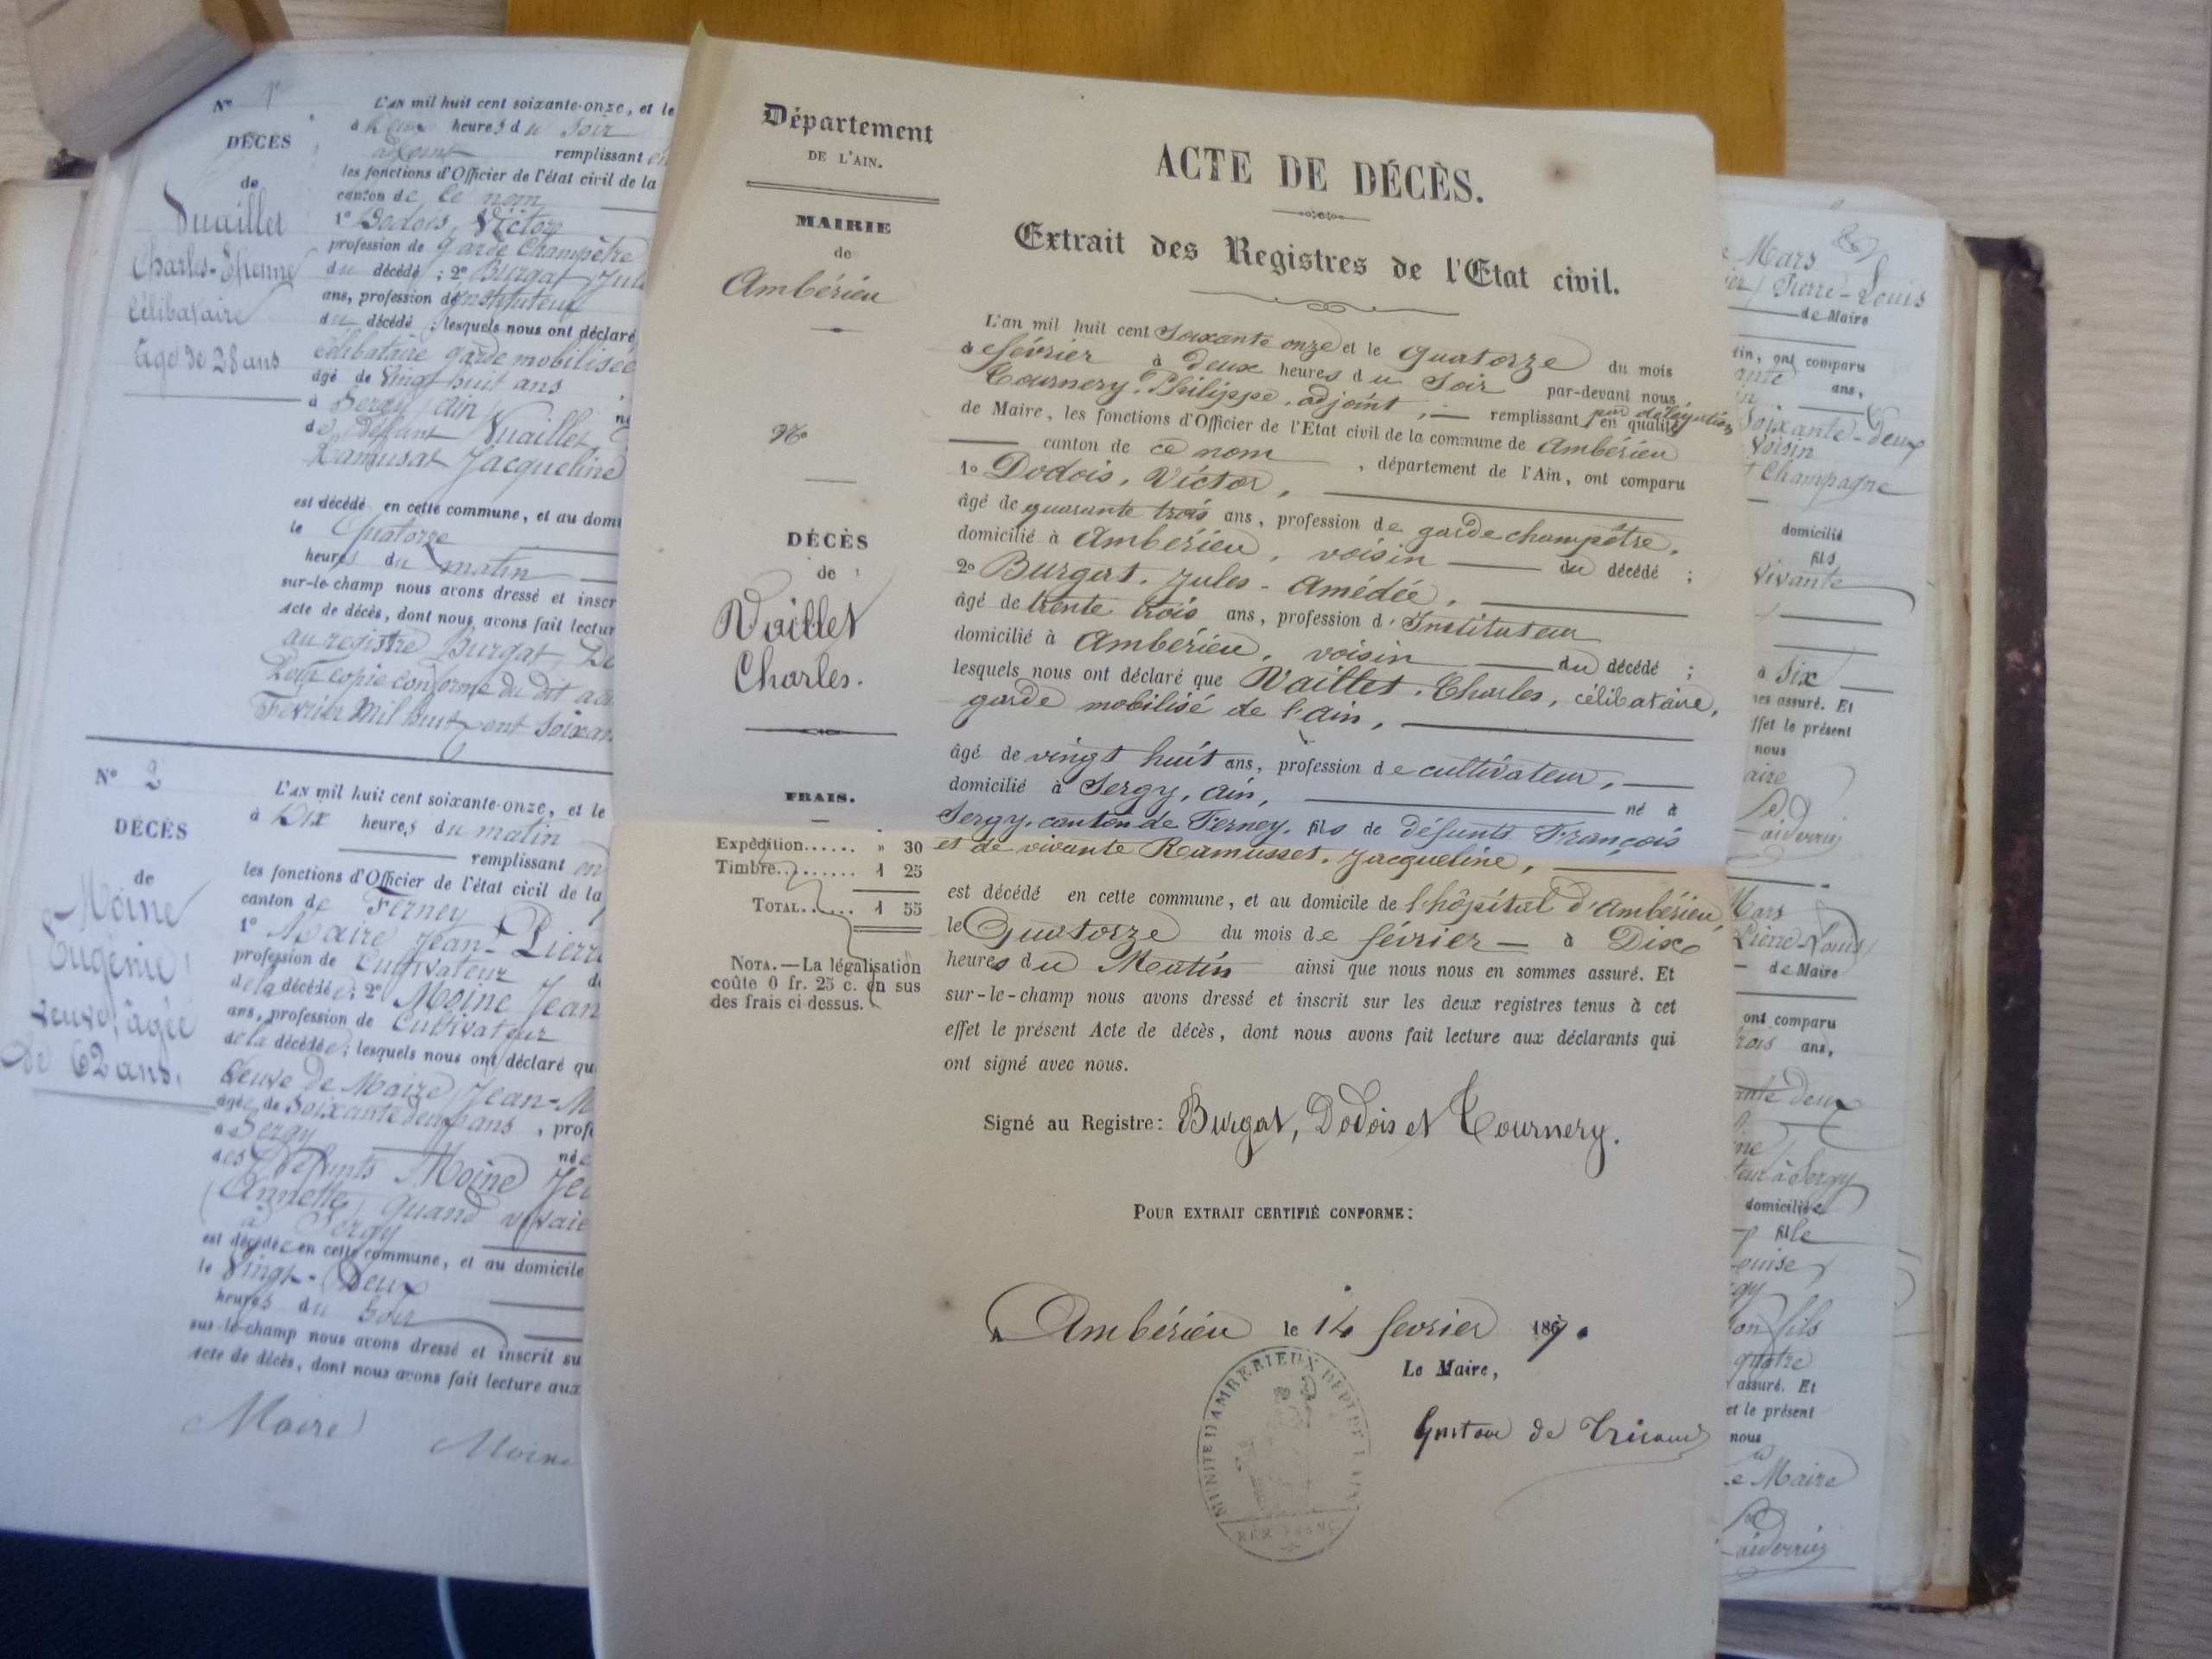 Nº 1
DÉCÈS
de
Vuaillet
Charles-Etienne
Célibataire
Agé de 28 ans
L'AN mil huit cent soixante-onze, et le
à deux heures du soir
adjoint remplissant en
les fonctions d'Officier de l'état civil de la
canton de ce nom
1º Dodois, Victor
profession de garde champêtre
du décédé ; 2º Burgat Jul
ans, profession d'instituteur
du décédé ; lesquels nous ont déclaré
célibataire garde mobilisée
âgé de vingt huit ans
à Sergy (Ain) né
de défunt Vuaillet
Ramusat Jacqueline
est décédé en cette commune, et au domi
le quatorze
heures du matin
sur-le-champ nous avons dressé et inscr
Acte de décès, dont nous avons fait lectur
au registre Burgat, Do
Pour copie conforme du dit act
Février mil huit cent soixan
Nº 2
DÉCÈS
de
Moine
Eugénie
veuve, âgée
de 62 ans.
L'AN mil huit cent soixante-onze, et le
à Dix heures du matin
remplissant en
les fonctions d'Officier de l'état civil de la
canton de Ferney
1º Maire Jean-Pierre
profession de Cultivateur
de la décédée ; 2º Moine Jean
ans, profession de Cultivateur
de la décédée ; lesquels nous ont déclaré qu
Veuve de Maire Jean-M
âgée de Soixante deux ans, prof
à Sergy née
des défunts Moine Je
Annette, quand vivaie
à Sergy
est décédée en cette commune, et au domicile
le Vingt-Deux
heures du Soir
sur-le-champ nous avons dressé et inscrit su
Acte de décès, dont nous avons fait lecture aux
Maire Moine
Département
DE L'AIN.
MAIRIE
de
Ambérieu
Nº
DÉCÈS
de
Vaillet
Charles.
FRAIS.
Expédition...... » 30
Timbre.......... 1 25
TOTAL...... 1 55
NOTA.—La légalisation
coûte 0 fr. 25 c. en sus
des frais ci-dessus.
ACTE DE DÉCÈS.
Extrait des Registres de l'Etat civil.
L'an mil huit cent Soixante onze et le quatorze du mois
de février à deux heures du Soir par-devant nous,
Tournery, Philippe, adjoint, remplissant par délégation en qualité
de Maire, les fonctions d'Officier de l'Etat civil de la commune de Ambérieu
canton de ce nom, département de l'Ain, ont comparu
1º Dodois, Victor,
âgé de quarante trois ans, profession de garde champêtre,
domicilié à Ambérieu, voisin du décédé ;
2º Burgat, Jules-Amédée,
âgé de trente trois ans, profession d'Instituteur
domicilié à Ambérieu, voisin du décédé ;
lesquels nous ont déclaré que Vaillet, Charles, célibataire,
garde mobilisé de l'Ain,
âgé de vingt huit ans, profession de cultivateur,
domicilié à Sergy, Ain, né à
Sergy, canton de Ferney, fils de défunts François
et de vivante Ramusset, Jacqueline,
est décédé en cette commune, et au domicile de l'hôpital d'Ambérieu,
le Quatorze du mois de février à Dix
heures du Matin ainsi que nous nous en sommes assuré. Et
sur-le-champ nous avons dressé et inscrit sur les deux registres tenus à cet
effet le présent Acte de décès, dont nous avons fait lecture aux déclarants qui
ont signé avec nous.
Signé au Registre: Burgat, Dodois et Tournery.
POUR EXTRAIT CERTIFIÉ CONFORME:
A Ambérieu le 14 fevrier 187
Le Maire,
Gustave de Tricaud
D'AMBERIEUX DEPT DE L'AIN
Mars
Pierre-Louis
de Maire
ont comparu
ans,
Soixante-deux
Voisin
Champagne
domicilié
fils
vivante
à Six
nes assuré. Et
ffet le présent
nous
aire
Mars
Pierre-Louis
de Maire
ont comparu
trois ans,
ante deux
teur à Sergy
domiciliée
fille
ouise
gy
son fils
quatre
assuré. Et
et le présent
nous
Le Maire